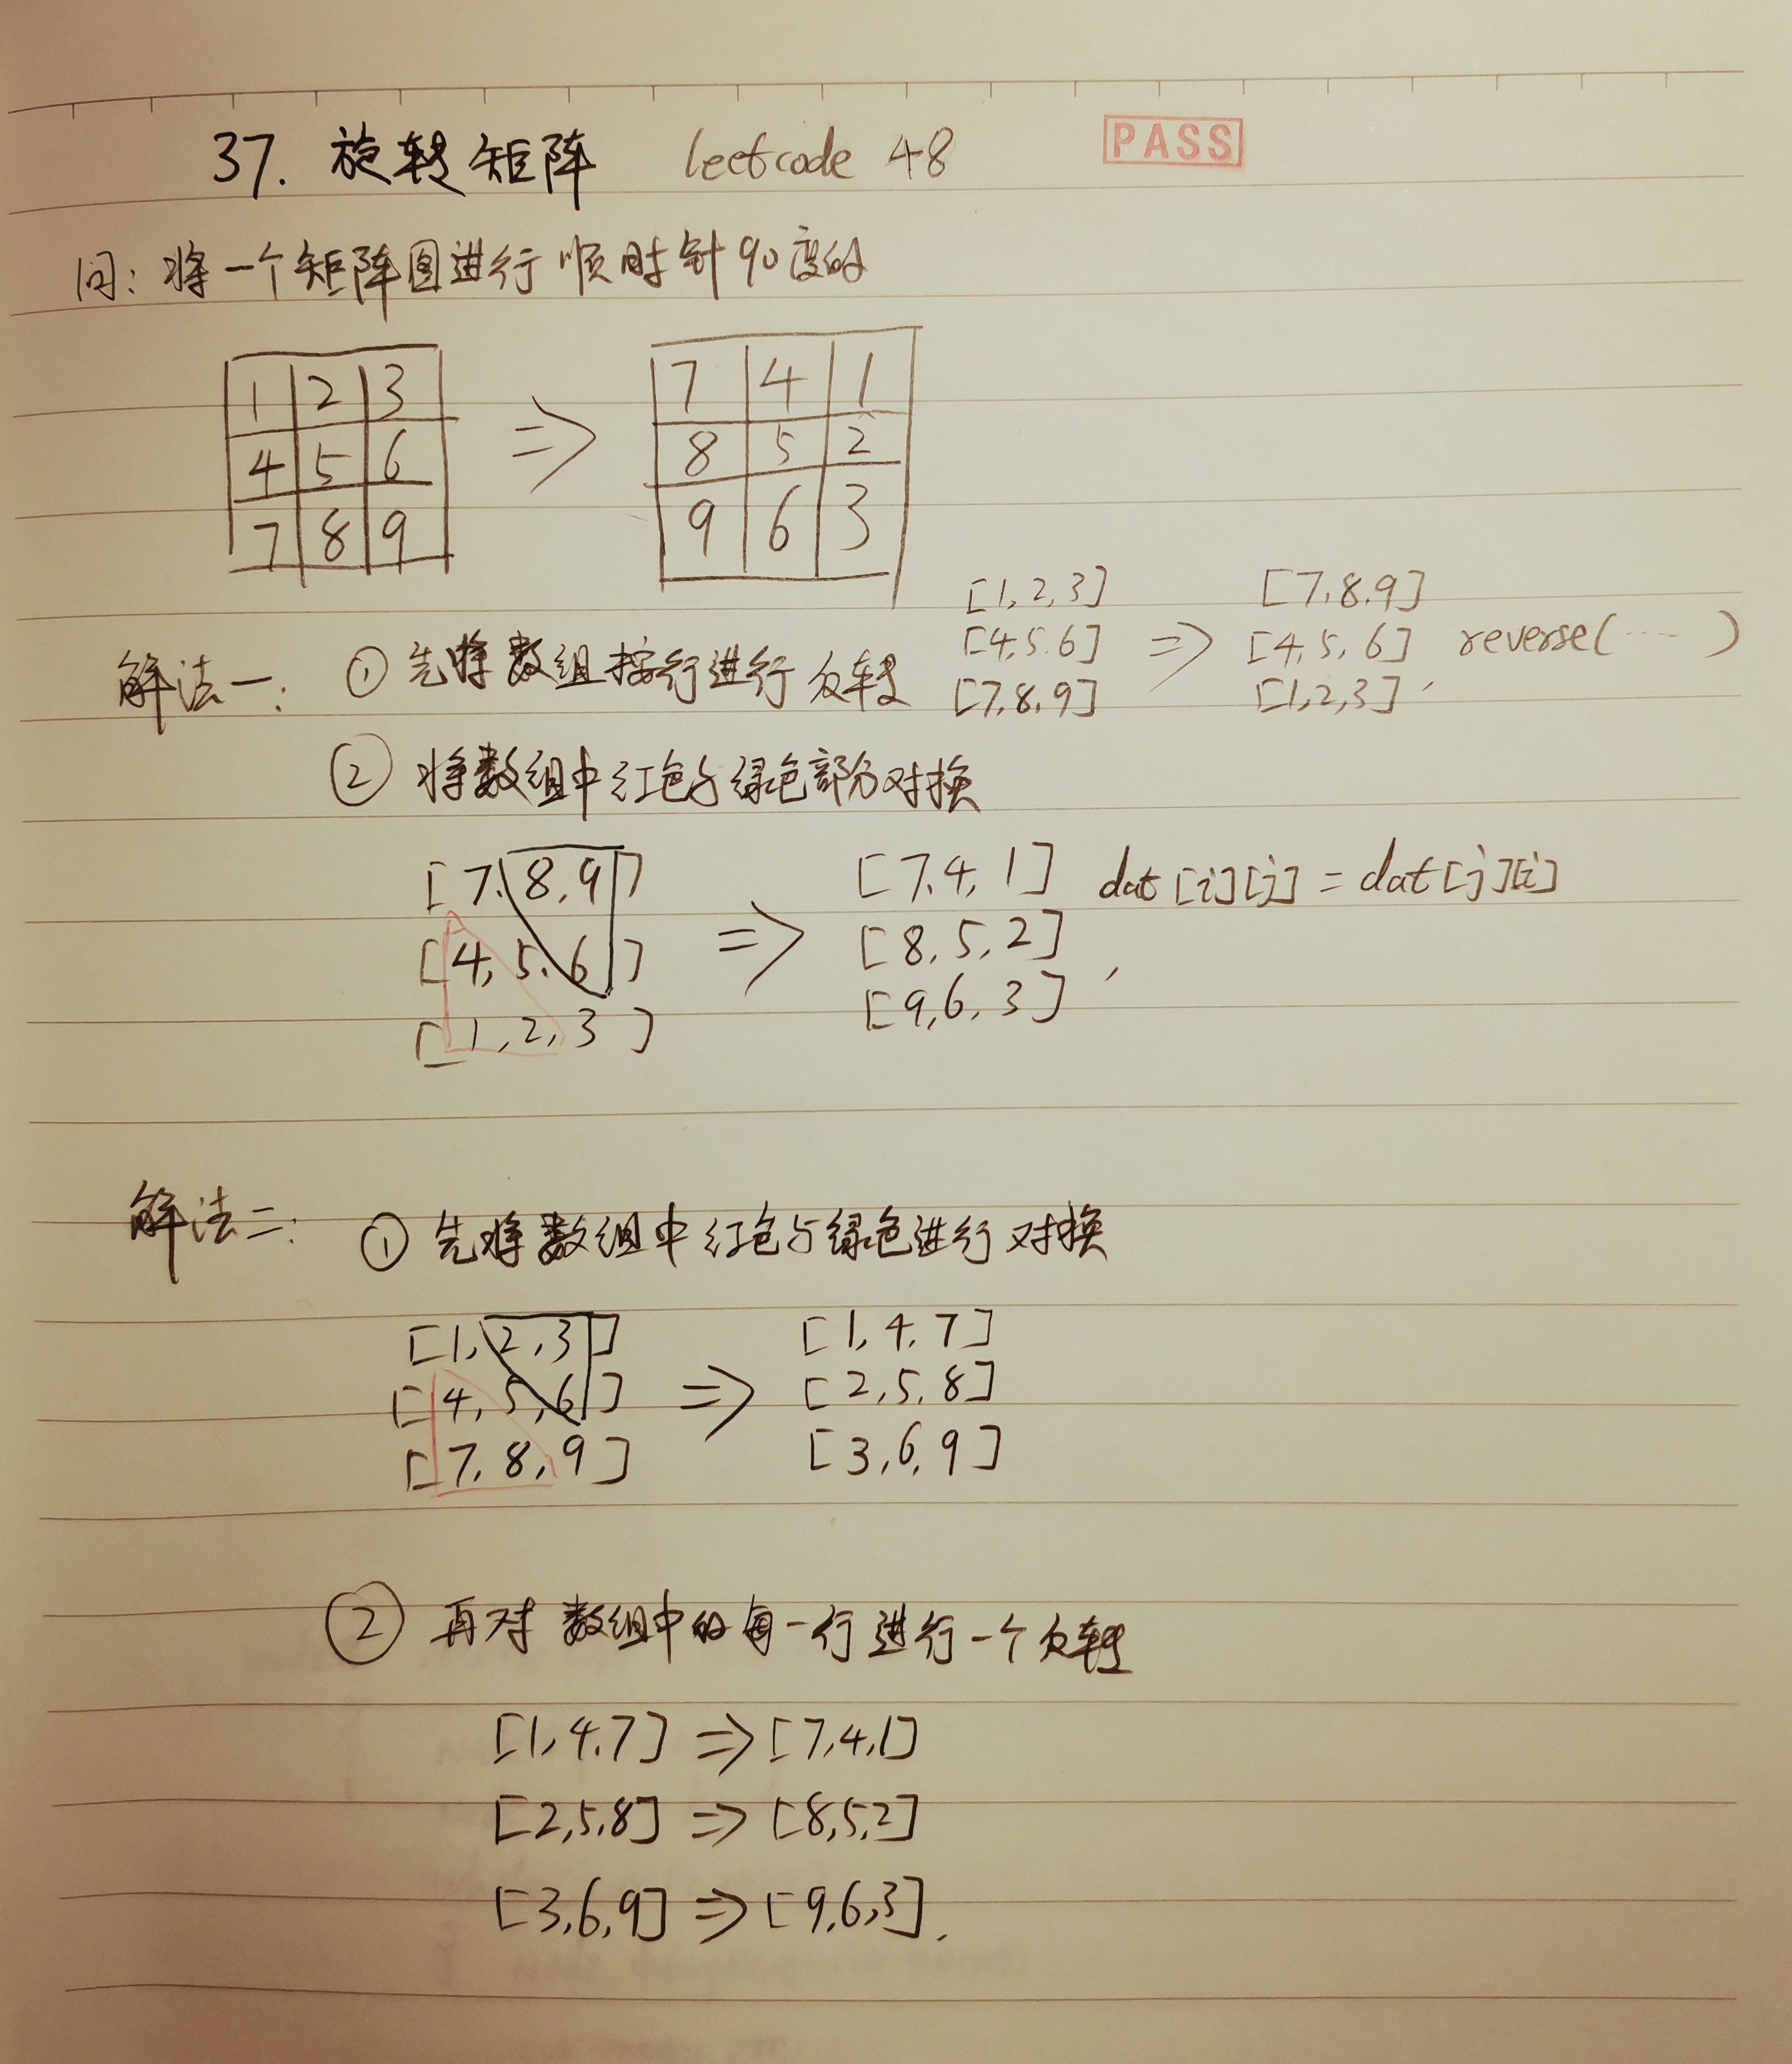 37. 旋转矩阵 leetcode 48 PASS
问: 将一个矩阵图进行顺时针90度的
1 2 3
4 5 6
7 8 9
=>
7 4 1
8 5 2
9 6 3
解法一: ① 先将数组按行进行反转
[1,2,3] [7,8,9]
[4,5,6] => [4,5,6] reverse(……)
[7,8,9] [1,2,3],
② 将数组中红色与绿色部分对换
[7,8,9] [7,4,1] dat[i][j] = dat[j][i]
[4,5,6] => [8,5,2]
[1,2,3] [9,6,3],
解法二: ① 先将数组中红色与绿色进行对换
[1,2,3] [1,4,7]
[4,5,6] => [2,5,8]
[7,8,9] [3,6,9]
② 再对数组中的每一行进行一个反转
[1,4,7] => [7,4,1]
[2,5,8] => [8,5,2]
[3,6,9] => [9,6,3].